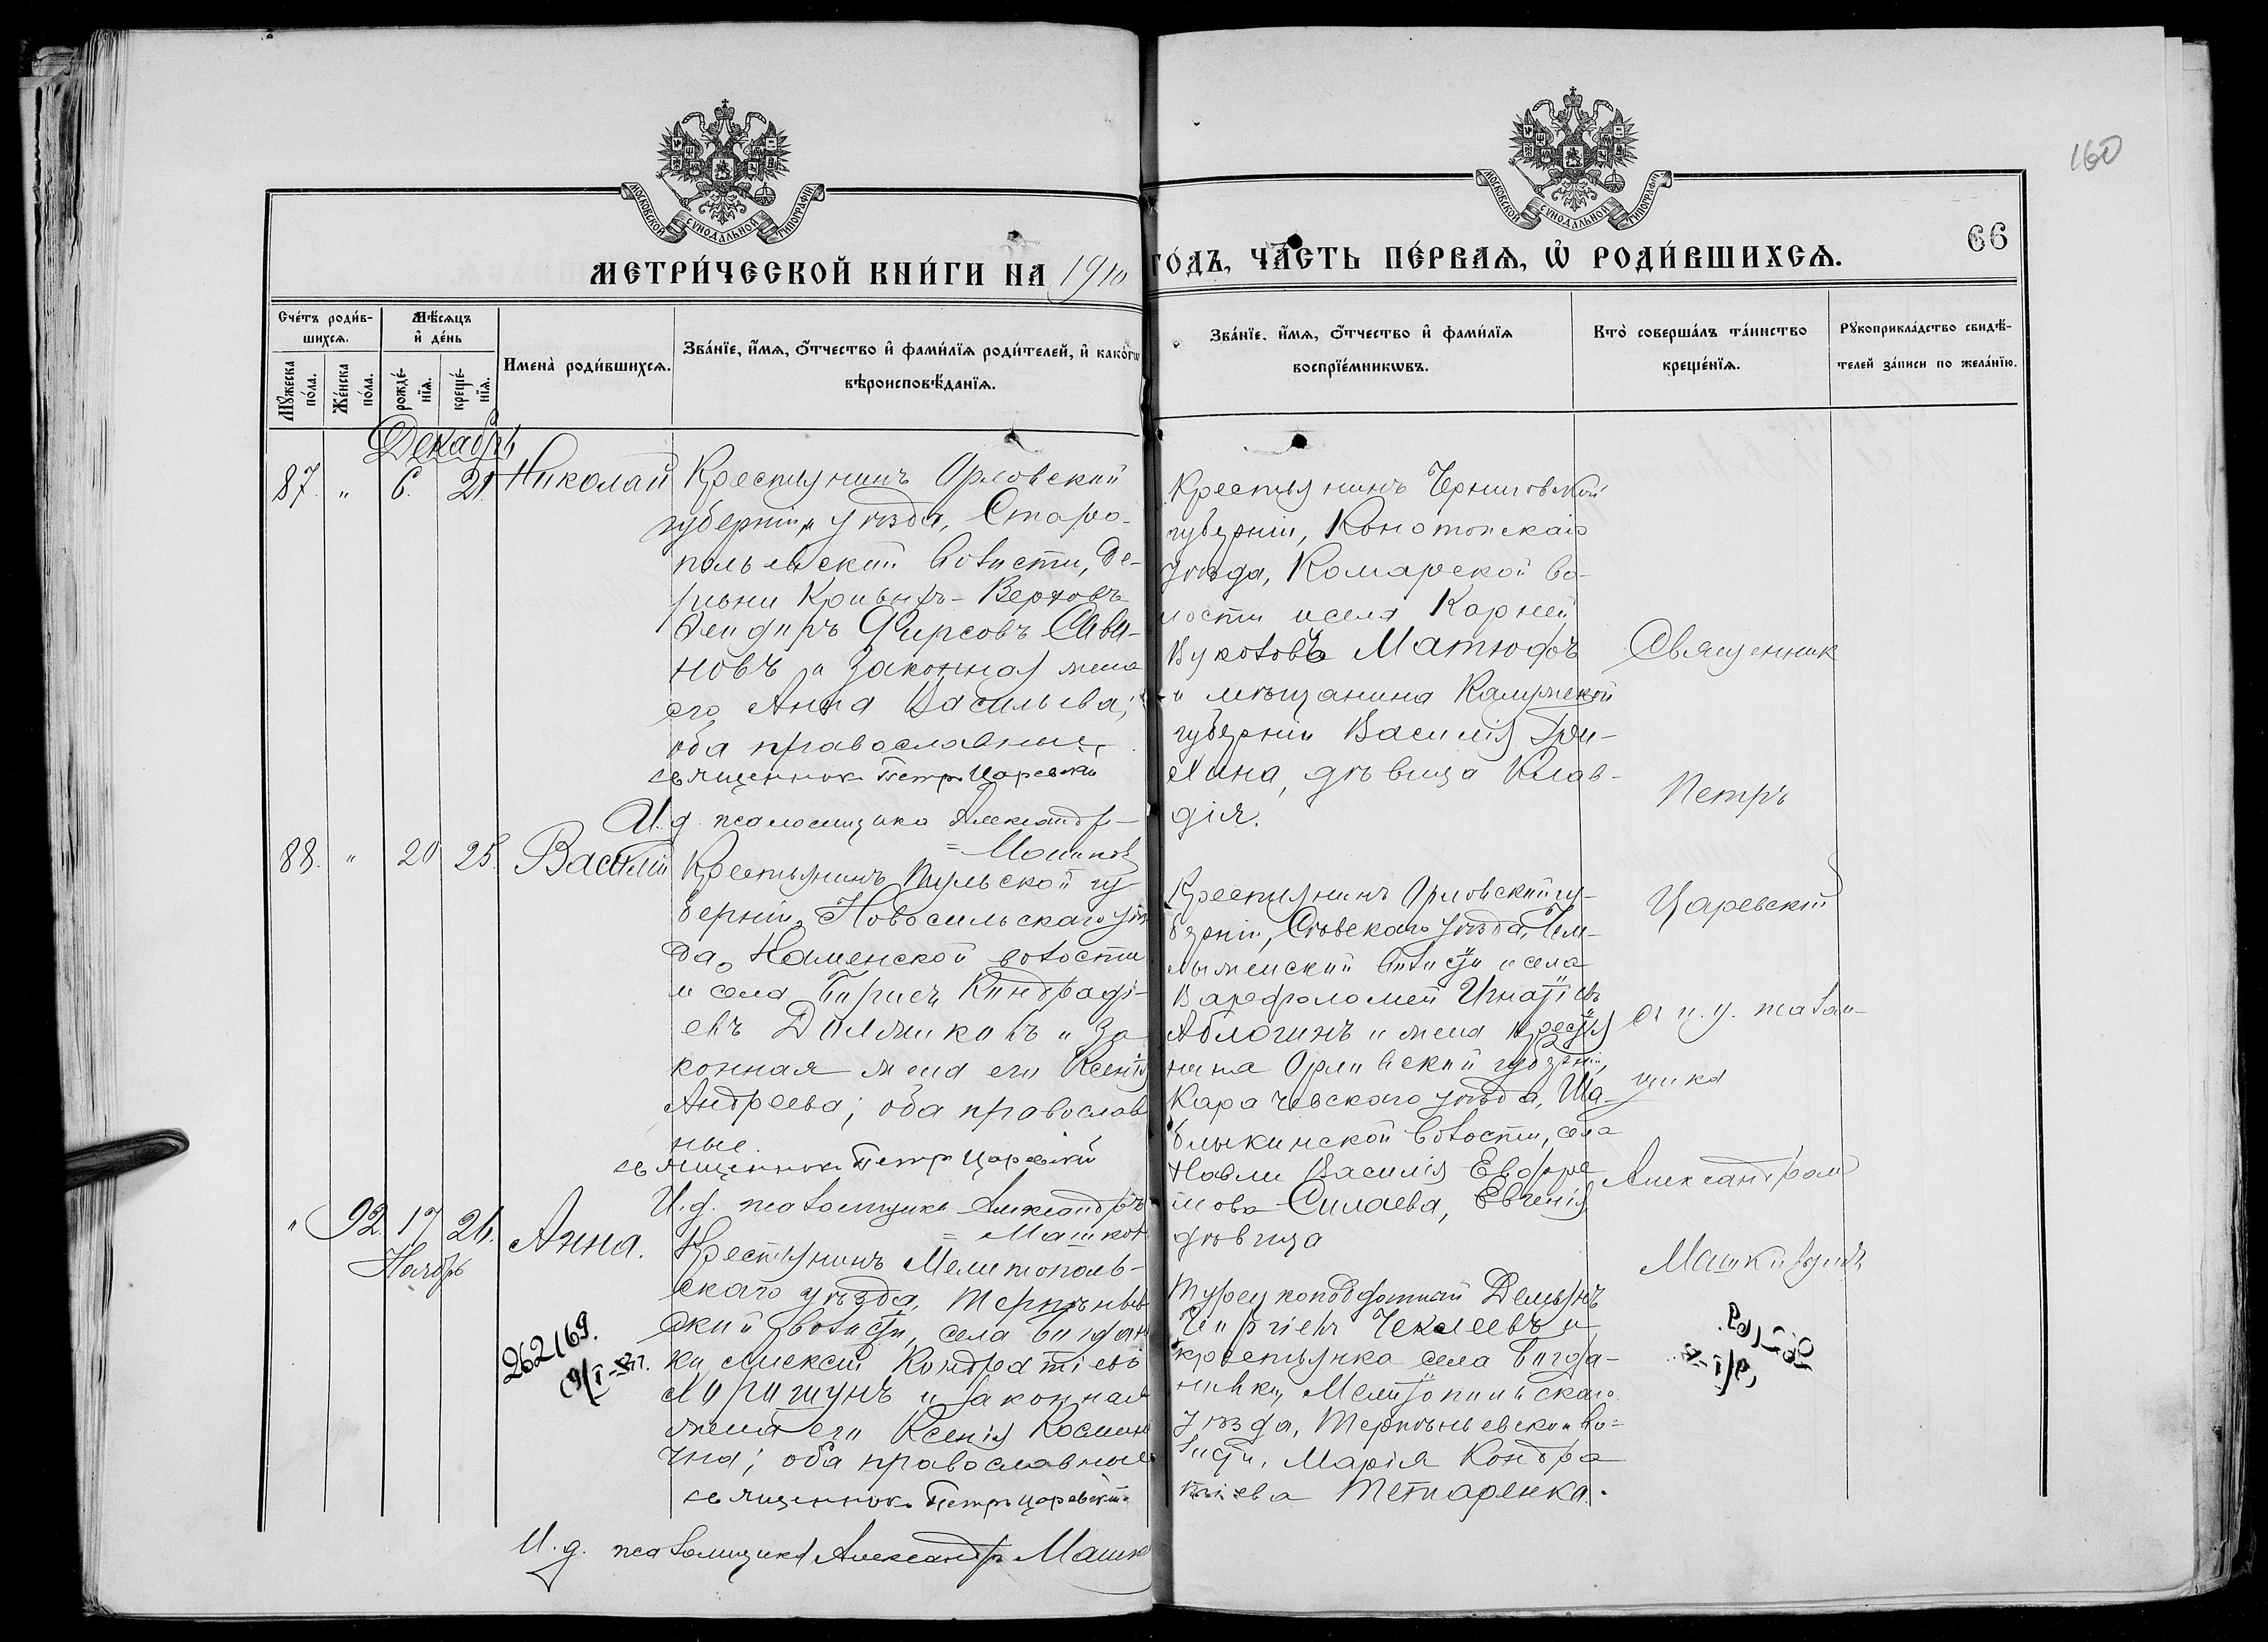 160
МОСКОВСКОЙ СѴНОДАЛЬНОЙ ТИПОГРАФІИ
МОСКОВСКОЙ СѴНОДАЛЬНОЙ ТИПОГРАФІИ
66
МЕТРИ́ЧЕСКОЙ КНИ́ГИ НА 1910 ГО́ДЪ, ЧА́СТЬ ПЕ́РВАѦ, Ѽ РОДИ́ВШИХСѦ.
Сче́тъ роди́в-
шихсѧ.
Мꙋ́жеска по́ла.
Же́нска по́ла.
Мѣ́сѧцъ
и҆ де́нь
рожде́-
нїѧ.
креще́-
нїѧ.
Имена̀ роди́вшихсѧ.
Зва́нїе, и҆́мѧ, ѻ҆́тчество и҆ фами́лїѧ роди́телей, и҆ како́гѡ
вѣроисповѣ́данїѧ.
Зва́нїе, и҆́мѧ, ѻ҆́тчество и҆ фами́лїѧ
воспрїе́мникѡвъ.
Кто̀ соверша́лъ та́инство
креще́нїѧ.
Рꙋкоприкла́дство свидѣ́-
телей за́писи по жела́нїю.
Декабрь
87. " 6. 21 Николай
Крестьянинъ Орловской
губерніи, уѣзда, Старо-
вости, де-
ревни Кривыхъ-Верховъ
Фирсовъ Сави-
новъ и законная жена
его Анна Васильева;
оба православные
священникъ Петръ Царевскій
И. д. псаломщика Александръ
= Машков
Крестьянинъ Черниговской
губерніи, Конотопскаго
уѣзда, Комарской во-
лости и села Карней
Матюфъ
и мѣщанина Калужской
губерніи Василія Гри-
дѣвица Клав-
дія.
88. " 20 25. Василій
Крестьянинъ Тульской гу-
берніи, Новосильскаго уѣз
да, волости
и села Борисъ Кондрать-
евъ и за-
конная жена его Ксенія
Андреева; оба православ
ные.
священникъ Петръ Царевскій
И. д. псаломщика Александръ
= Машков
Крестьянинъ Орловской гу-
берніи, Сѣвскаго уѣзда,
волости и села
Варфоломей Игнатіевъ
Аблогинъ и жена крестья
нина Орловской губерніи,
Карачевскаго уѣзда, Ша-
блыкинской волости, села
Навли Василія Ефре
мова Силаева, Евгенія
дѣвица
Священник
Петръ
Царевскій
съ и. д. псалом-
щика
Александромъ
Машковымъ
" 92. 17 26. Анна.
Ноябрь
262169.
Крестьянинъ Мелитополь-
скаго уѣзда, Терпѣньев
ской волости, села Богданов
ки, Алексѣй Кондратіевъ
и законная
жена его Ксенія Косьми
чна; оба православные
священникъ Петръ Царевскій.
И. д. псаломщика Александръ Машко
Турецкоподданный Демьянъ
Чеклеевъ и
крестьянка села Богда-
новки, Мелитопольскаго
уѣзда, Терпѣньевской во-
лости, Марія Кондра
тіева Тетаренка.